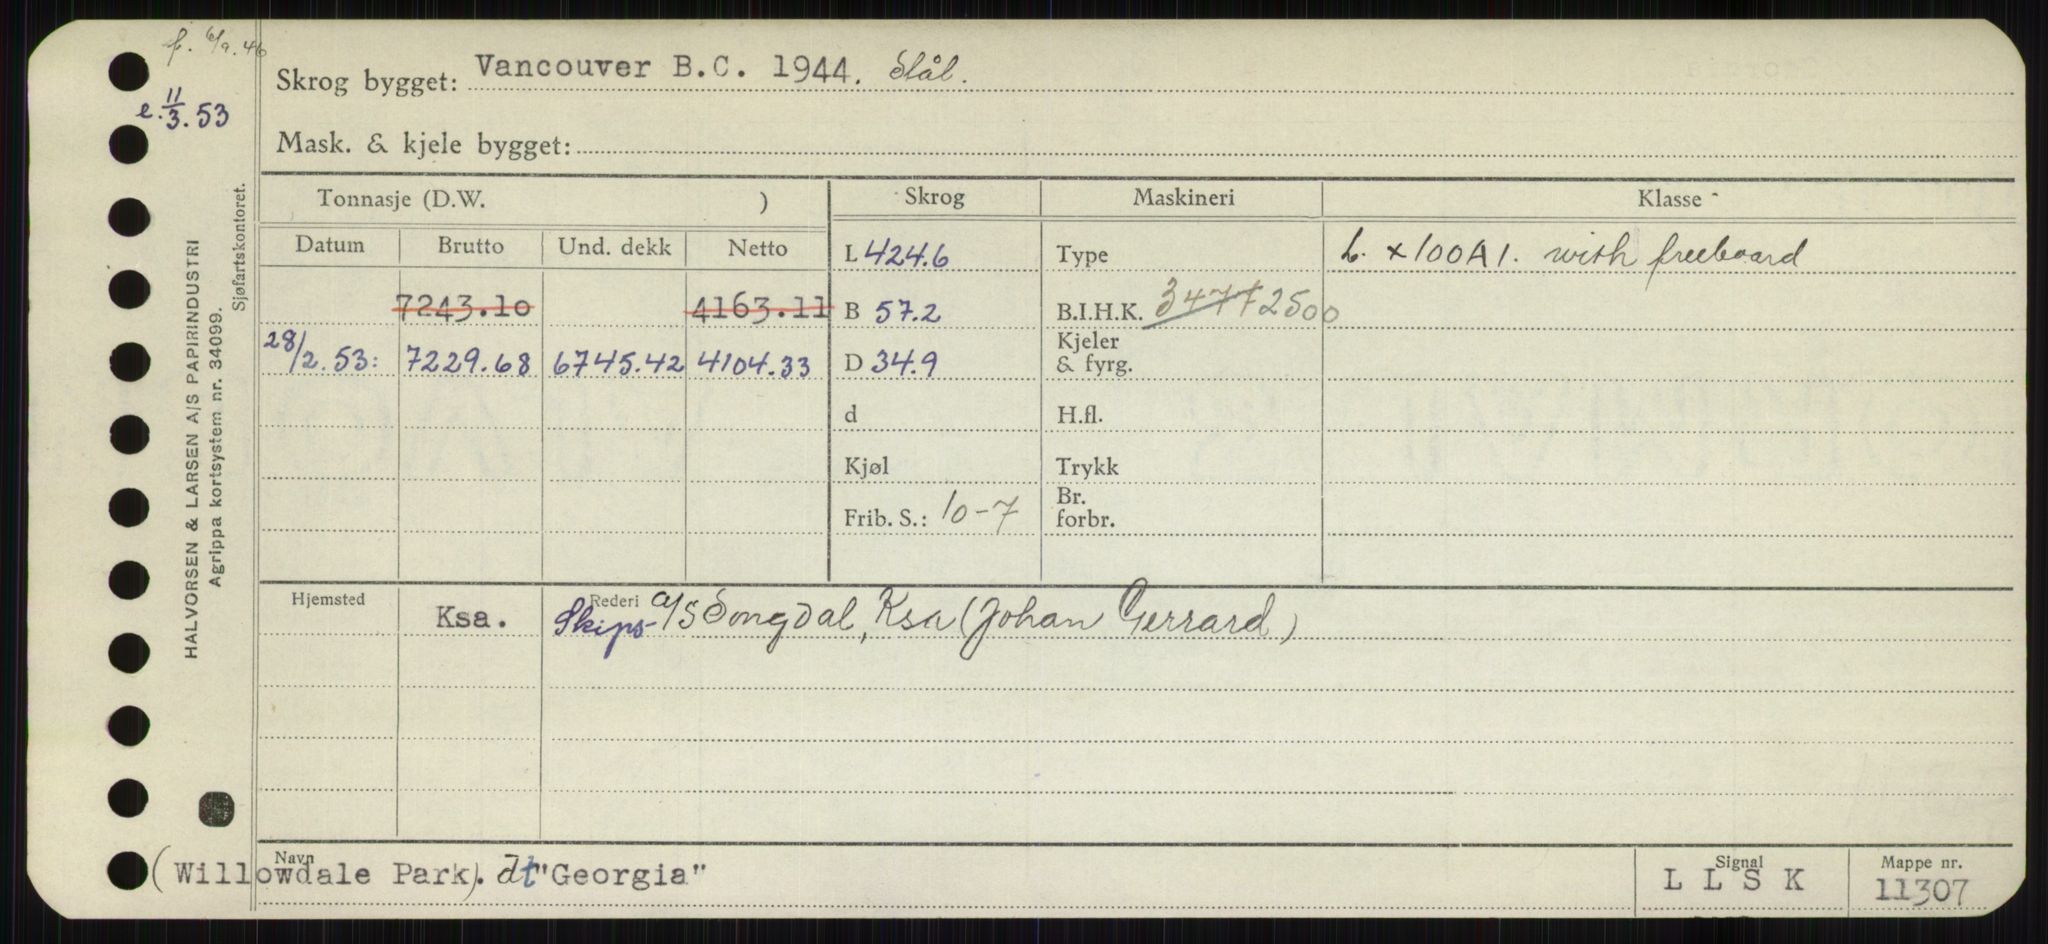 f. 6/9.46
e. 11/3.53
Skrog bygget: Vancouver B.C. 1944. Stål.
Mask. & kjele bygget:
HALVORSEN & LARSEN A/S PAPIRINDUSTRI
Agrippa kortsystem nr. 34099.
Sjøfartskontoret.
Tonnasje (D.W. ) Skrog Maskineri Klasse
Datum Brutto Und. dekk Netto L 424.6 Type L. x 100A1. with freeboard
7243.10 4163.11 B 57.2 B.I.H.K. 3477 2500
28/2.53: 7229.68 6745.42 4104.33 D 34.9 Kjeler & fyrg.
d H.fl.
Kjøl Trykk
Frib. S.: 10-7 Br. forbr.
Hjemsted Rederi
Ksa. Skips- A/S Songdal, Ksa (Johan Gerrard)
Navn Signal Mappe nr.
(Willowdale Park). dt "Georgia" L L S K 11307